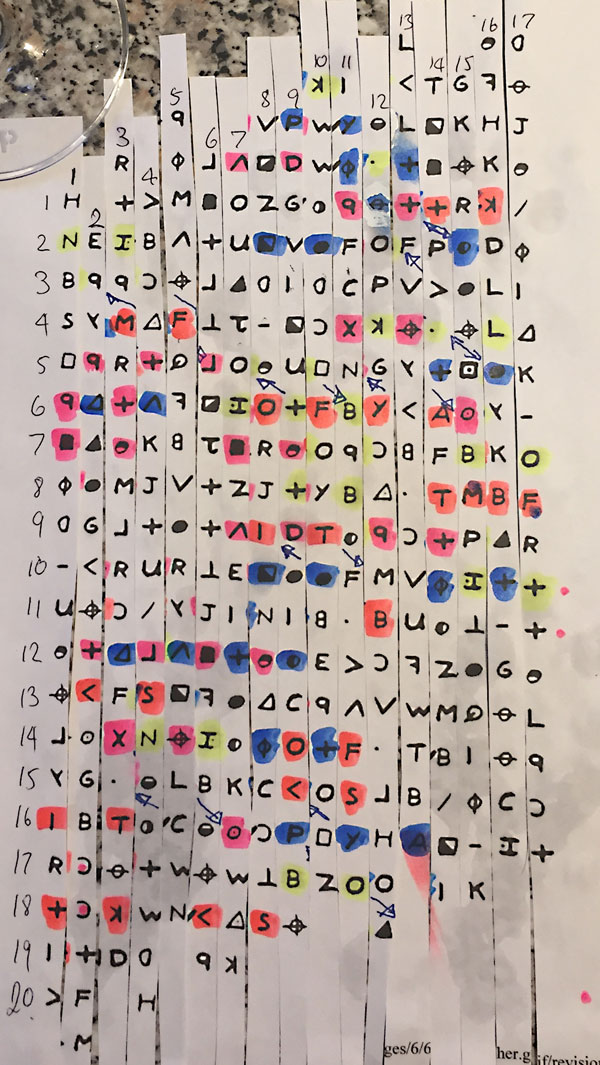 13 16 17
L ⊖ O
10 11 14 15
K I < T G ꟻ ⊖
5 8 9 12
q V P W Y ⊖ L ◪ K H J
3 6 7
R Φ ⅃ Λ ◪ D W Φ · + ■ ⌖ K ●
1 4
1 H + > M ■ O Z G O q ⌖ + + R K /
2
2 N E I B Λ + U ◪ V ● F O F P O D Φ
3 B q q Ɔ ⌖ ⅃ ▲ O I O C P V > ● L I
4 S Y M △ F ⊥ τ - ◪ Ɔ X K ⌖ · ⌖ L △
5 □ q R + Q L O ⊖ U □ N G Y + ⊡ ● K
6 q △ + Λ ꟻ ◪ I O + F B Y < A O Y -
7 ■ ▲ ⊖ K B τ ■ R ⊖ O q Ɔ B F B K O
8 Φ ● M J V + Z J + Y B △ · T M B F
9 O G ⅃ + ● + Λ I D T O q Ɔ + P ▲ R
10 - < R U R ⊥ E ◪ ● ● F M V Φ I + +
11 U ⌖ Ɔ / Y J I N I 8 · B U O ⊥ - +
12 O + △ ⅃ Λ ■ + ⊖ ⊖ E > Ɔ ꟻ Z ● G ⊖
13 ⌖ < F S ◪ ꟻ ● △ C q Λ V W M Q ⊖ L
14 ⅃ O X N ⌖ I O Φ O + F · T B I ⊖ q
15 Y G · ⊖ L B K C < O S ⅃ B / Φ C Ɔ
16 I B T O C ⊖ O Ɔ P □ Y H A ◪ - I +
17 R Ɔ ⊖ + W ⌖ W ⊥ B Z O O I K
18 + Ɔ K W N < △ S ⌖ ▲
19 I + D O q K
20 > F H
· M
ges/6/6 her.g if/revisio